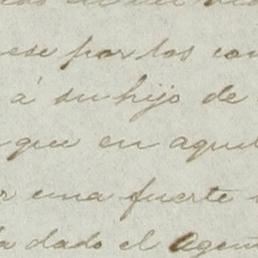 ese por los con
á su hijo de
que en aquel
r una fuerte
a dado el Agen